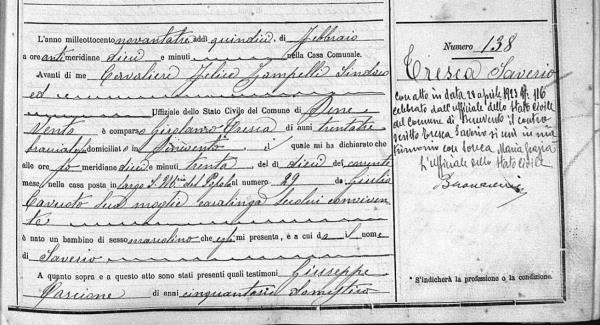 L'anno milleottocento novantatre addì quindici di Febbraio
a ore antimeridiane dieci e minuti nella Casa Comunale.
Avanti di me Cavaliere Felice Zampelli Sindaco
ed
Uffiziale dello Stato Civile del Comune di Bene
vento è comparso Tresca di anni trentatre
bracciale domiciliato in Benevento il quale mi ha dichiarato che
alle ore po meridiane dieci e minuti trenta del dì dieci del corrente
mese, nella casa posta in largo al numero 29 da Giulia
sua moglie casalinga seco lui conviven
te
è nato un bambino di sesso mascolino che egli mi presenta, e a cui dà il nome
di Saverio
A quanto sopra e a questo atto sono stati presenti quali testimoni Giuseppe
di anni domestico
Numero 138
Tresca Saverio
con atto in data 28 aprile 1923 N. 116
celebrato dall'uffiziale dello Stato Civile
del Comune di Benevento il contro
scritto Tresca Saverio si unì in ma
trimonio con Maria Grazia
L'Uffiziale dello Stato Civile
* S'indicherà la professione o la condizione.